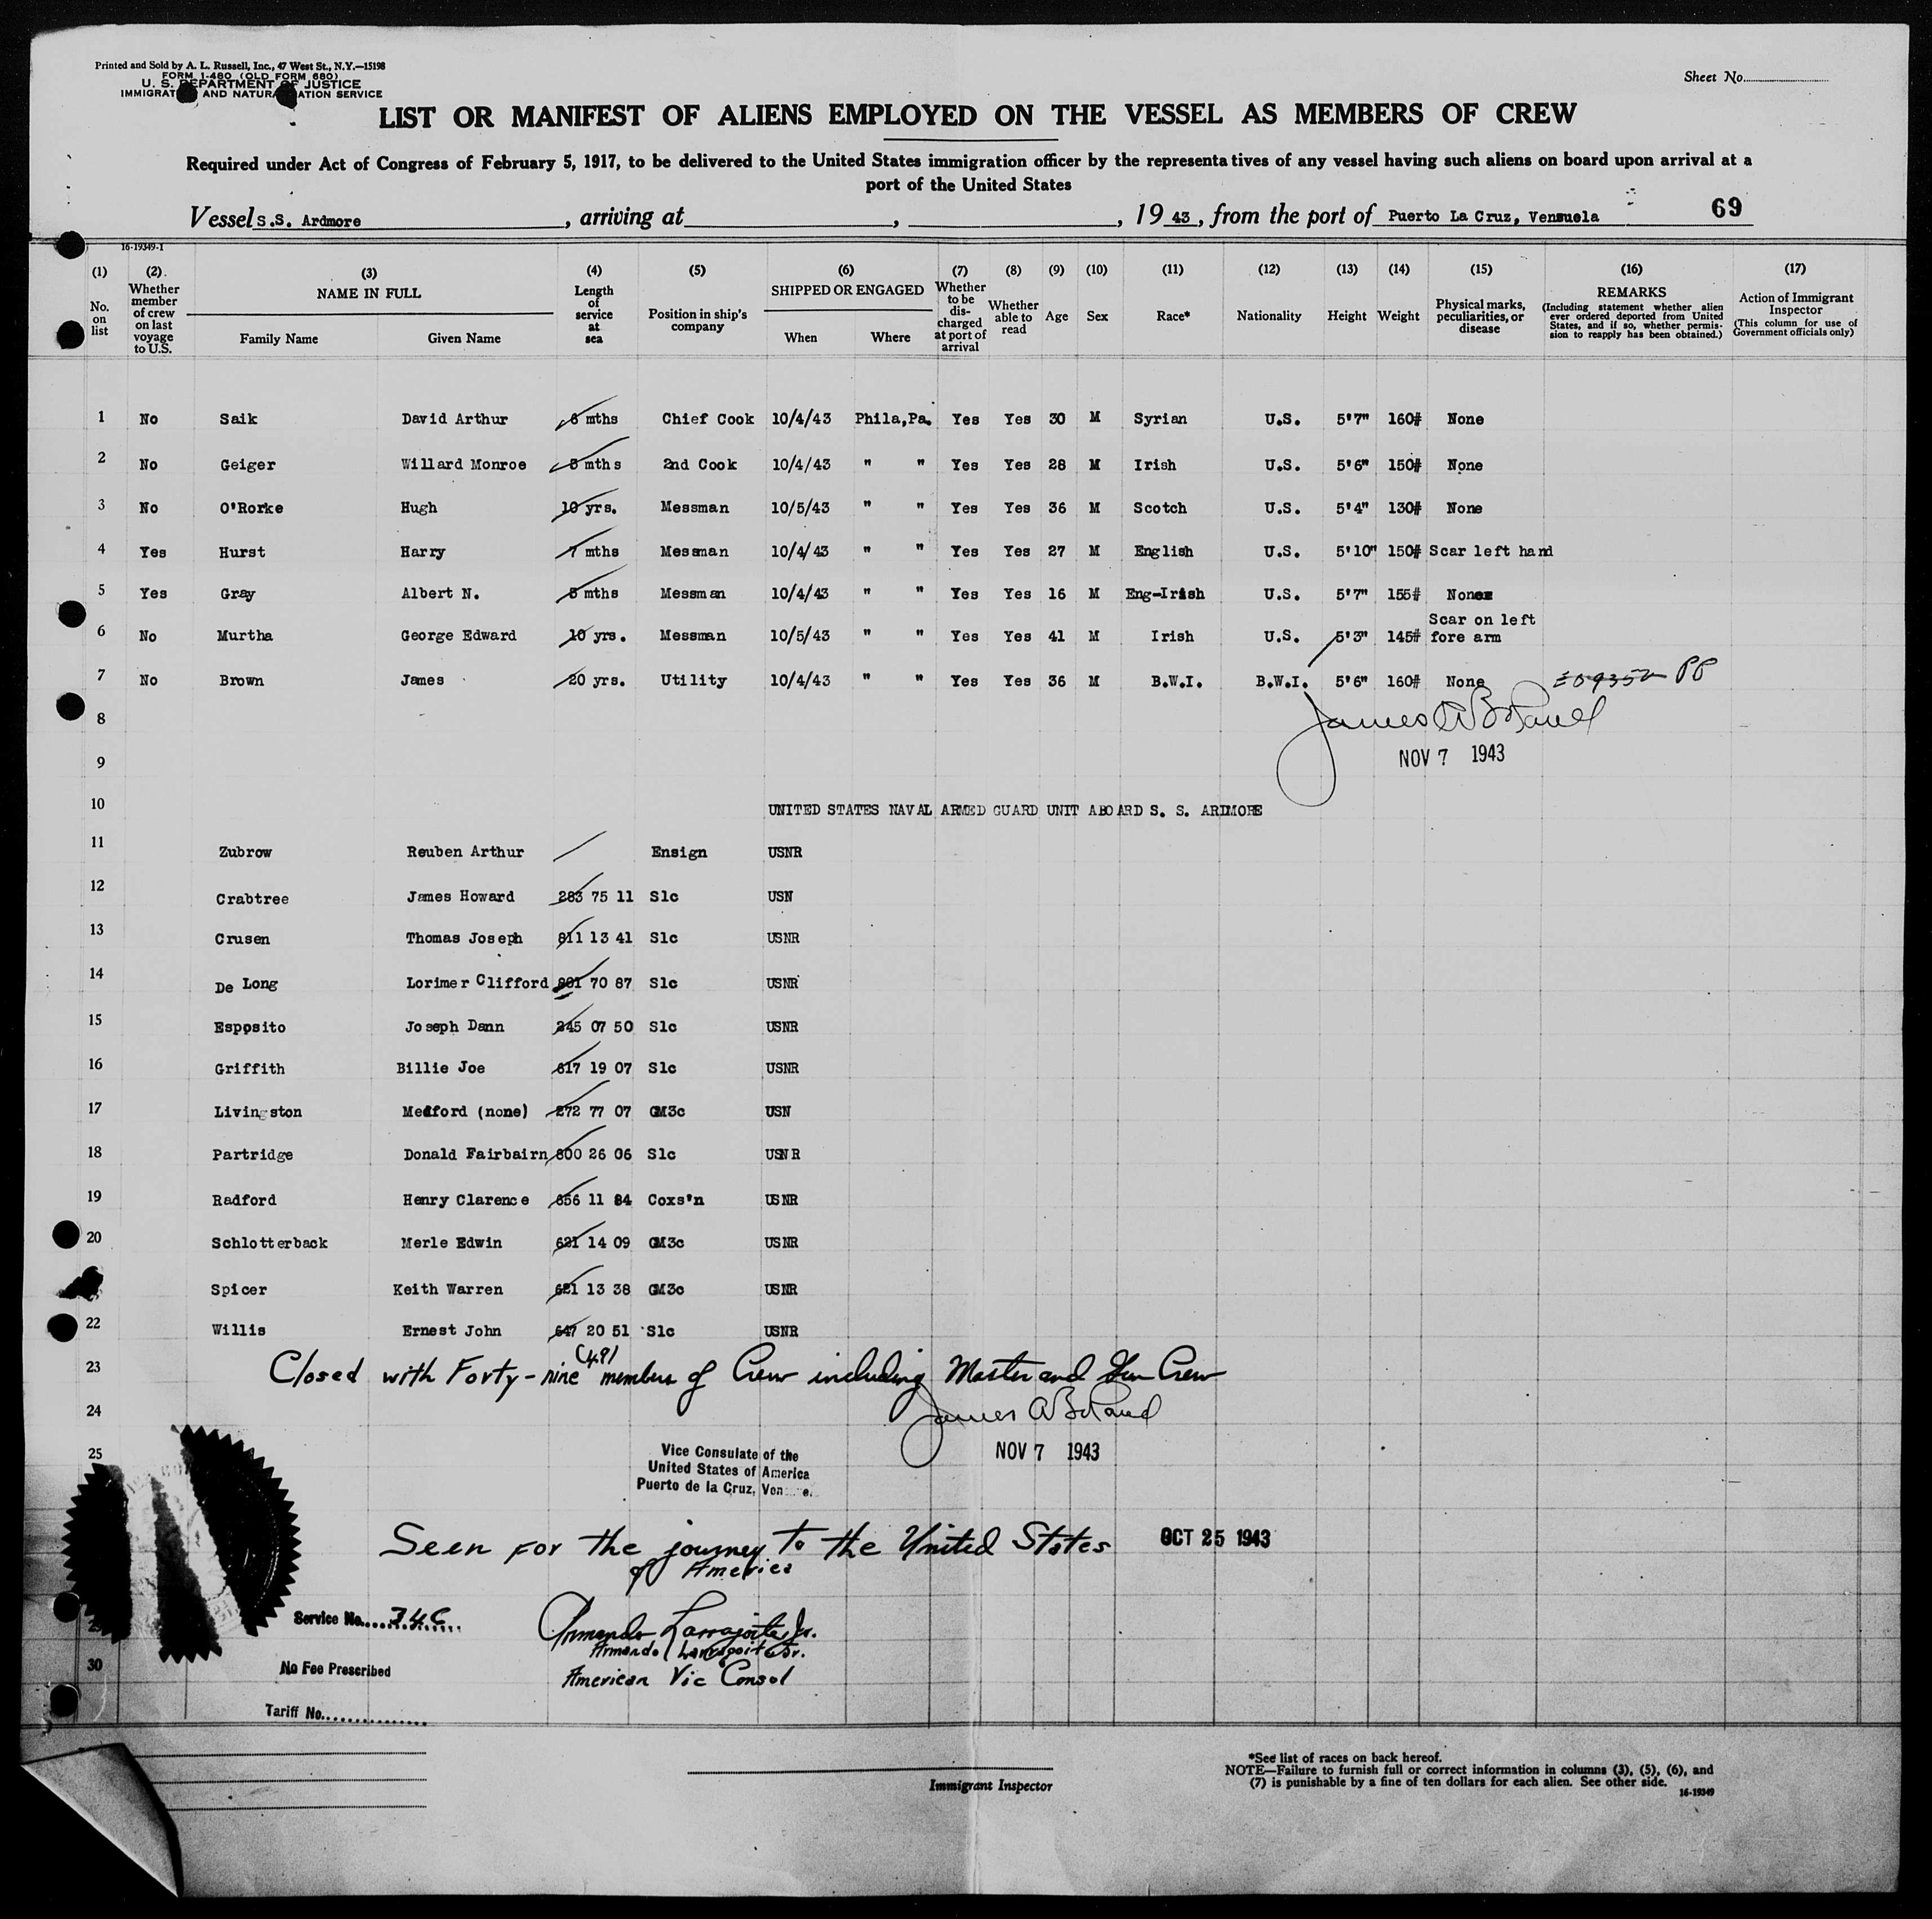 Printed and Sold by A. L. Russell, Inc., 47 West St., N.Y.—15198
FORM 1-480 (OLD FORM 680)
U. S. DEPARTMENT OF JUSTICE
IMMIGRAT AND NATURA ATION SERVICE
Sheet No.
LIST OR MANIFEST OF ALIENS EMPLOYED ON THE VESSEL AS MEMBERS OF CREW
Required under Act of Congress of February 5, 1917, to be delivered to the United States immigration officer by the representatives of any vessel having such aliens on board upon arrival at a
port of the United States
Vessel S.S. Ardmore, arriving at , , 19 43, from the port of Puerto La Cruz, Venzuela 69
16-19349-1
(1) No. on list
(2) Whether member of crew on last voyage to U.S.
(3) NAME IN FULL Family Name Given Name
(4) Length of service at sea
(5) Position in ship's company
(6) SHIPPED OR ENGAGED When Where
(7) Whether to be discharged at port of arrival
(8) Whether able to read
(9) Age
(10) Sex
(11) Race*
(12) Nationality
(13) Height
(14) Weight
(15) Physical marks, peculiarities, or disease
(16) REMARKS (Including statement whether alien ever ordered deported from United States, and if so, whether permission to reapply has been obtained.)
(17) Action of Immigrant Inspector (This column for use of Government officials only)
1 No Saik David Arthur 6 mths Chief Cook 10/4/43 Phila,Pa. Yes Yes 30 M Syrian U.S. 5'7" 160# None
2 No Geiger Willard Monroe 8 mths 2nd Cook 10/4/43 " " Yes Yes 28 M Irish U.S. 5'6" 150# None
3 No O'Rorke Hugh 10 yrs. Messman 10/5/43 " " Yes Yes 36 M Scotch U.S. 5'4" 130# None
4 Yes Hurst Harry 7 mths Messman 10/4/43 " " Yes Yes 27 M English U.S. 5'10" 150# Scar left hand
5 Yes Gray Albert N. 5 mths Messman 10/4/43 " " Yes Yes 16 M Eng-Irish U.S. 5'7" 155# None
6 No Murtha George Edward 10 yrs. Messman 10/5/43 " " Yes Yes 41 M Irish U.S. 5'3" 145# Scar on left fore arm
7 No Brown James 20 yrs. Utility 10/4/43 " " Yes Yes 36 M B.W.I. B.W.I. 5'6" 160# None PP
8 James A Boland
9 NOV 7 1943
10 UNITED STATES NAVAL ARMED GUARD UNIT ABOARD S. S. ARDMORE
11 Zubrow Reuben Arthur Ensign USNR
12 Crabtree James Howard 283 75 11 S1c USN
13 Crusen Thomas Joseph 811 13 41 S1c USNR
14 De Long Lorimer Clifford 801 70 87 S1c USNR
15 Esposito Joseph Dann 245 07 50 S1c USNR
16 Griffith Billie Joe 617 19 07 S1c USNR
17 Livingston Medford (none) 272 77 07 GM3c USN
18 Partridge Donald Fairbairn 800 26 06 S1c USNR
19 Radford Henry Clarence 656 11 84 Coxs'n USNR
20 Schlotterback Merle Edwin 621 14 09 GM3c USNR
Spicer Keith Warren 621 13 38 GM3c USNR
22 Willis Ernest John 647 20 51 S1c USNR
23 Closed with Forty-nine (49) members of Crew including Master and Gun Crew
24 James A Boland
25 NOV 7 1943
Vice Consulate of the
United States of America
Puerto de la Cruz,
Seen for the journey to the United States OCT 25 1943
of America
Service No. 346
Armando Larragoite Jr.
Armando Larragoite Jr.
30 No Fee Prescribed
American Vic Consol
Tariff No.
Immigrant Inspector
*See list of races on back hereof.
NOTE—Failure to furnish full or correct information in columns (3), (5), (6), and
(7) is punishable by a fine of ten dollars for each alien. See other side.
16-19349